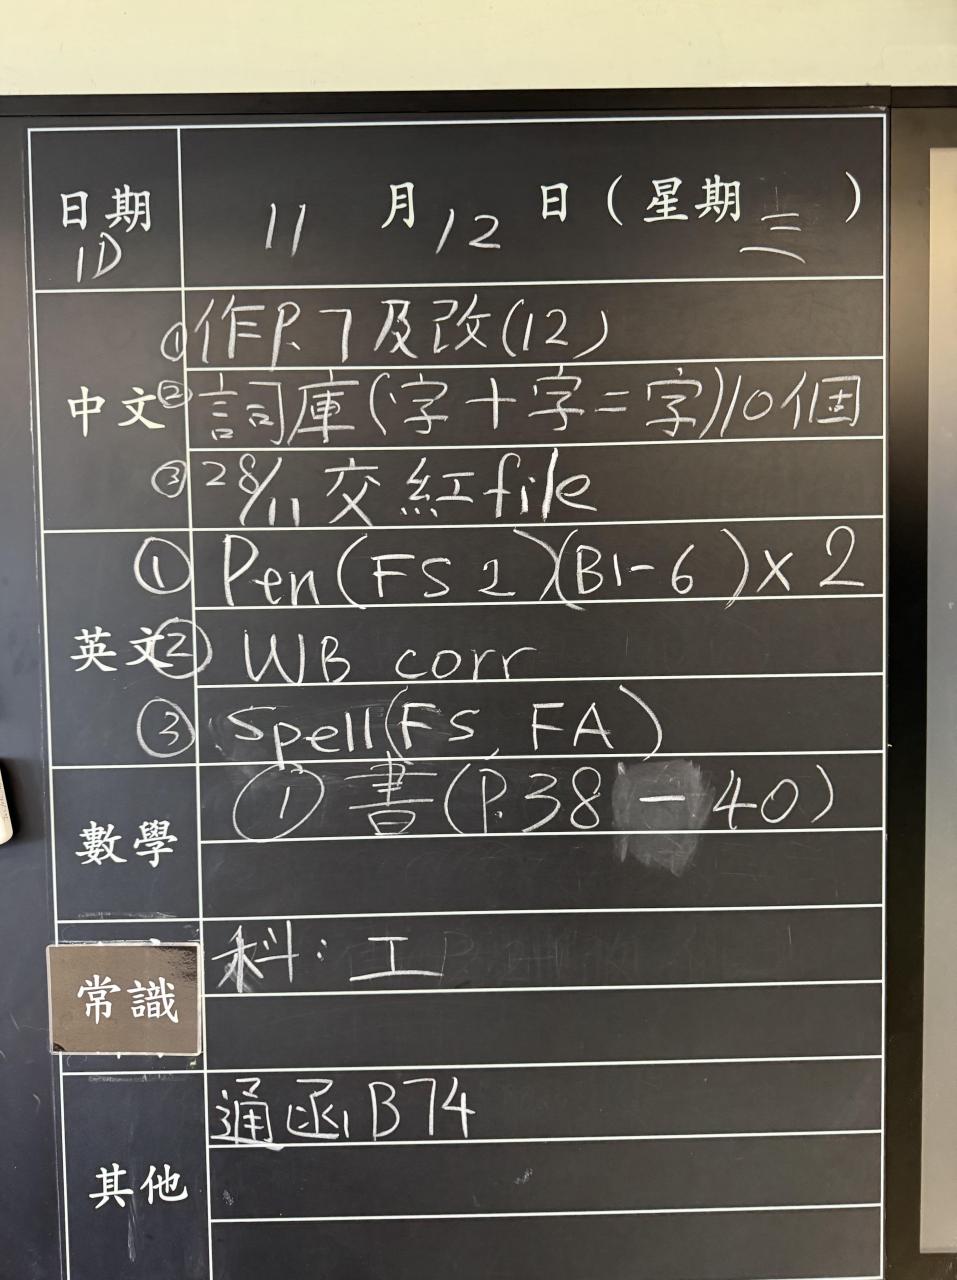 日期 11 月 12 日 ( 星期 三 )
1D
① 作P.7及改(12)
中文 ② 詞庫(字+字=字)10個
③ 28/11 交紅file
① Pen (FS 2)(B1-6)×2
英文 ② WB corr
③ Spell(FS, FA)
① 書(P.38-40)
數學
科: 工
常識
通函B74
其他